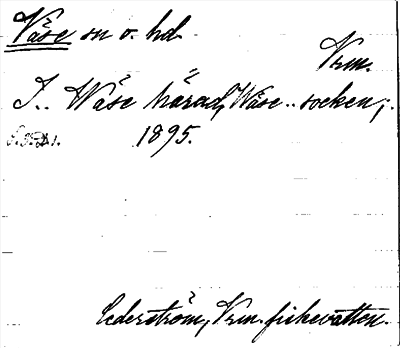 Väse sn o. hd.
Vrm.
I.. Wäse härad, Wäse .. socken;.
1895.
Cederström, Vrm. fiskevatten.